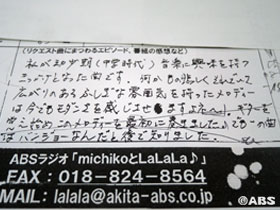 (リクエスト曲にまつわるエピソード、番組の感想など)
私が幼少期(中学時代)音楽に興味を持つ
きっかけとなった曲です。何か物悲しくそれでいて
広がりのあるふしぎな雰囲気を持ったメロディー
は今でもモダンさを感じさせますよネ… ギターを
覚え始めこのメロディーを最初に奏ました。でもこの曲
はバンジョーなんだと後で知りました。
ABSラジオ「michikoとLaLaLa♪」
FAX:018-824-8564
MAIL:lalala@akita-abs.co.jp
©ABS